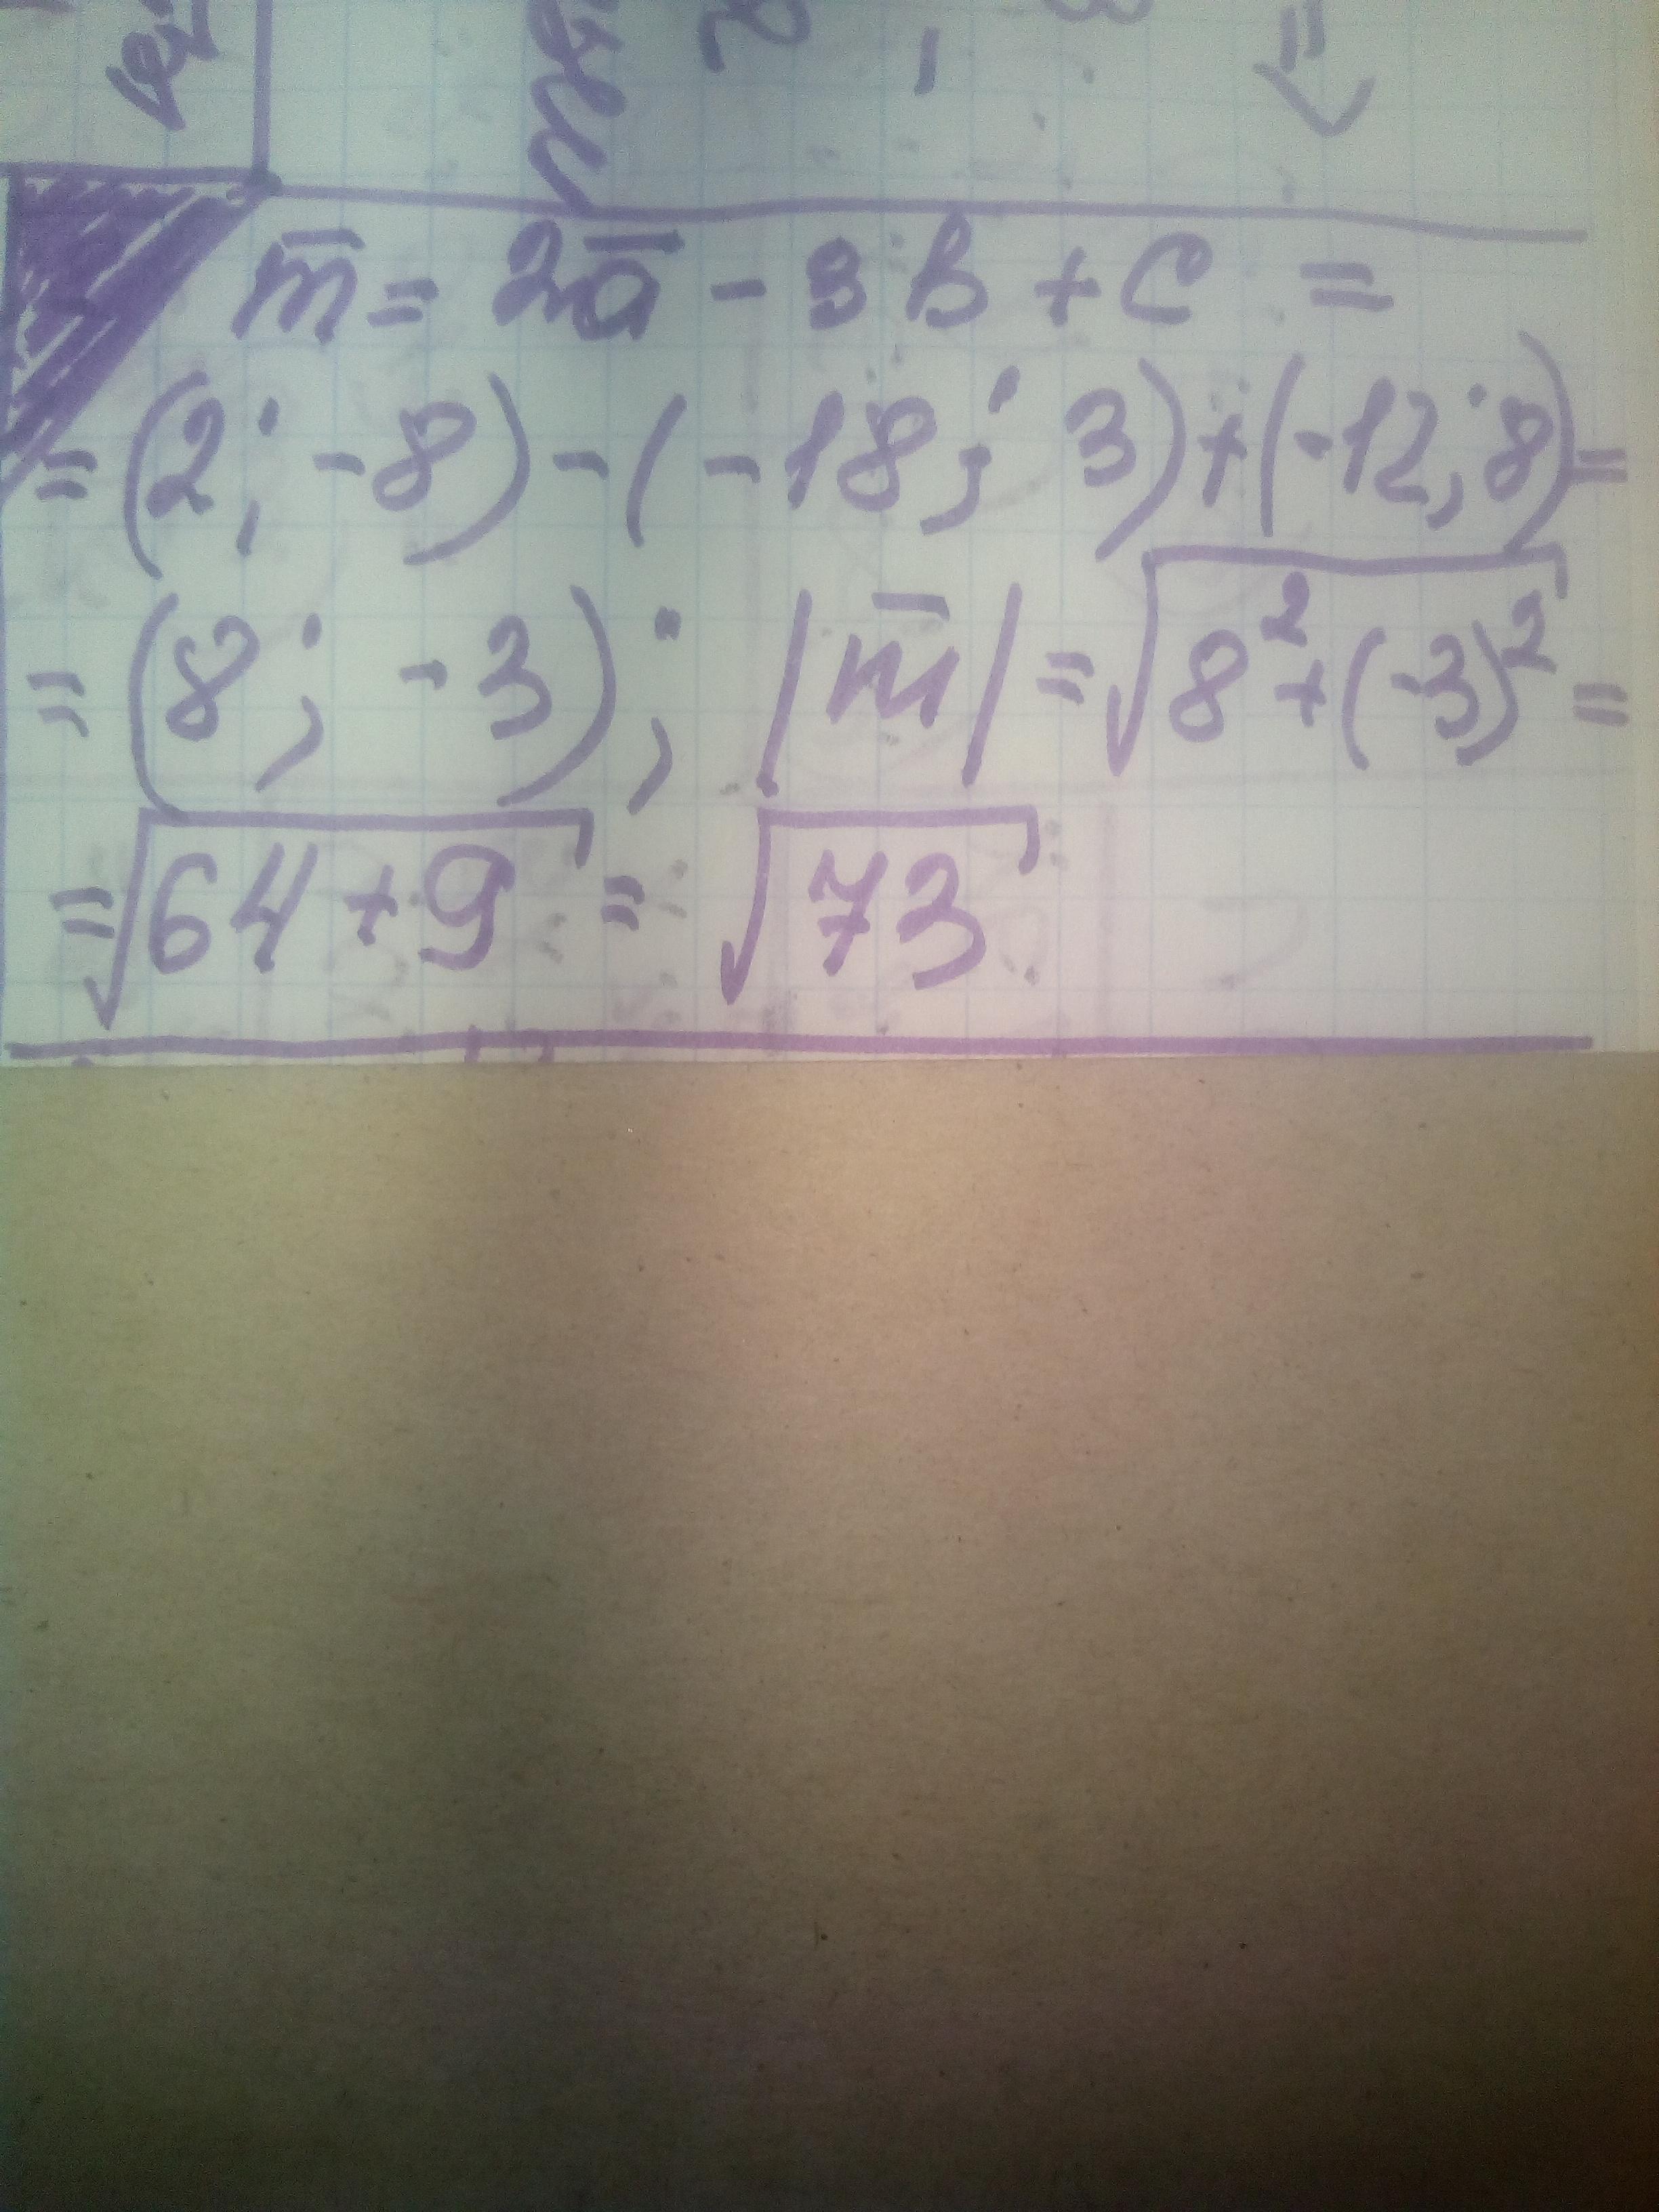 m̅ = 2a̅ - 3b + c =
= (2; -8) - (-18; 3) + (-12; 8) =
= (8; -3); |m̅| = √(8² + (-3)²) =
= √(64 + 9) = √73